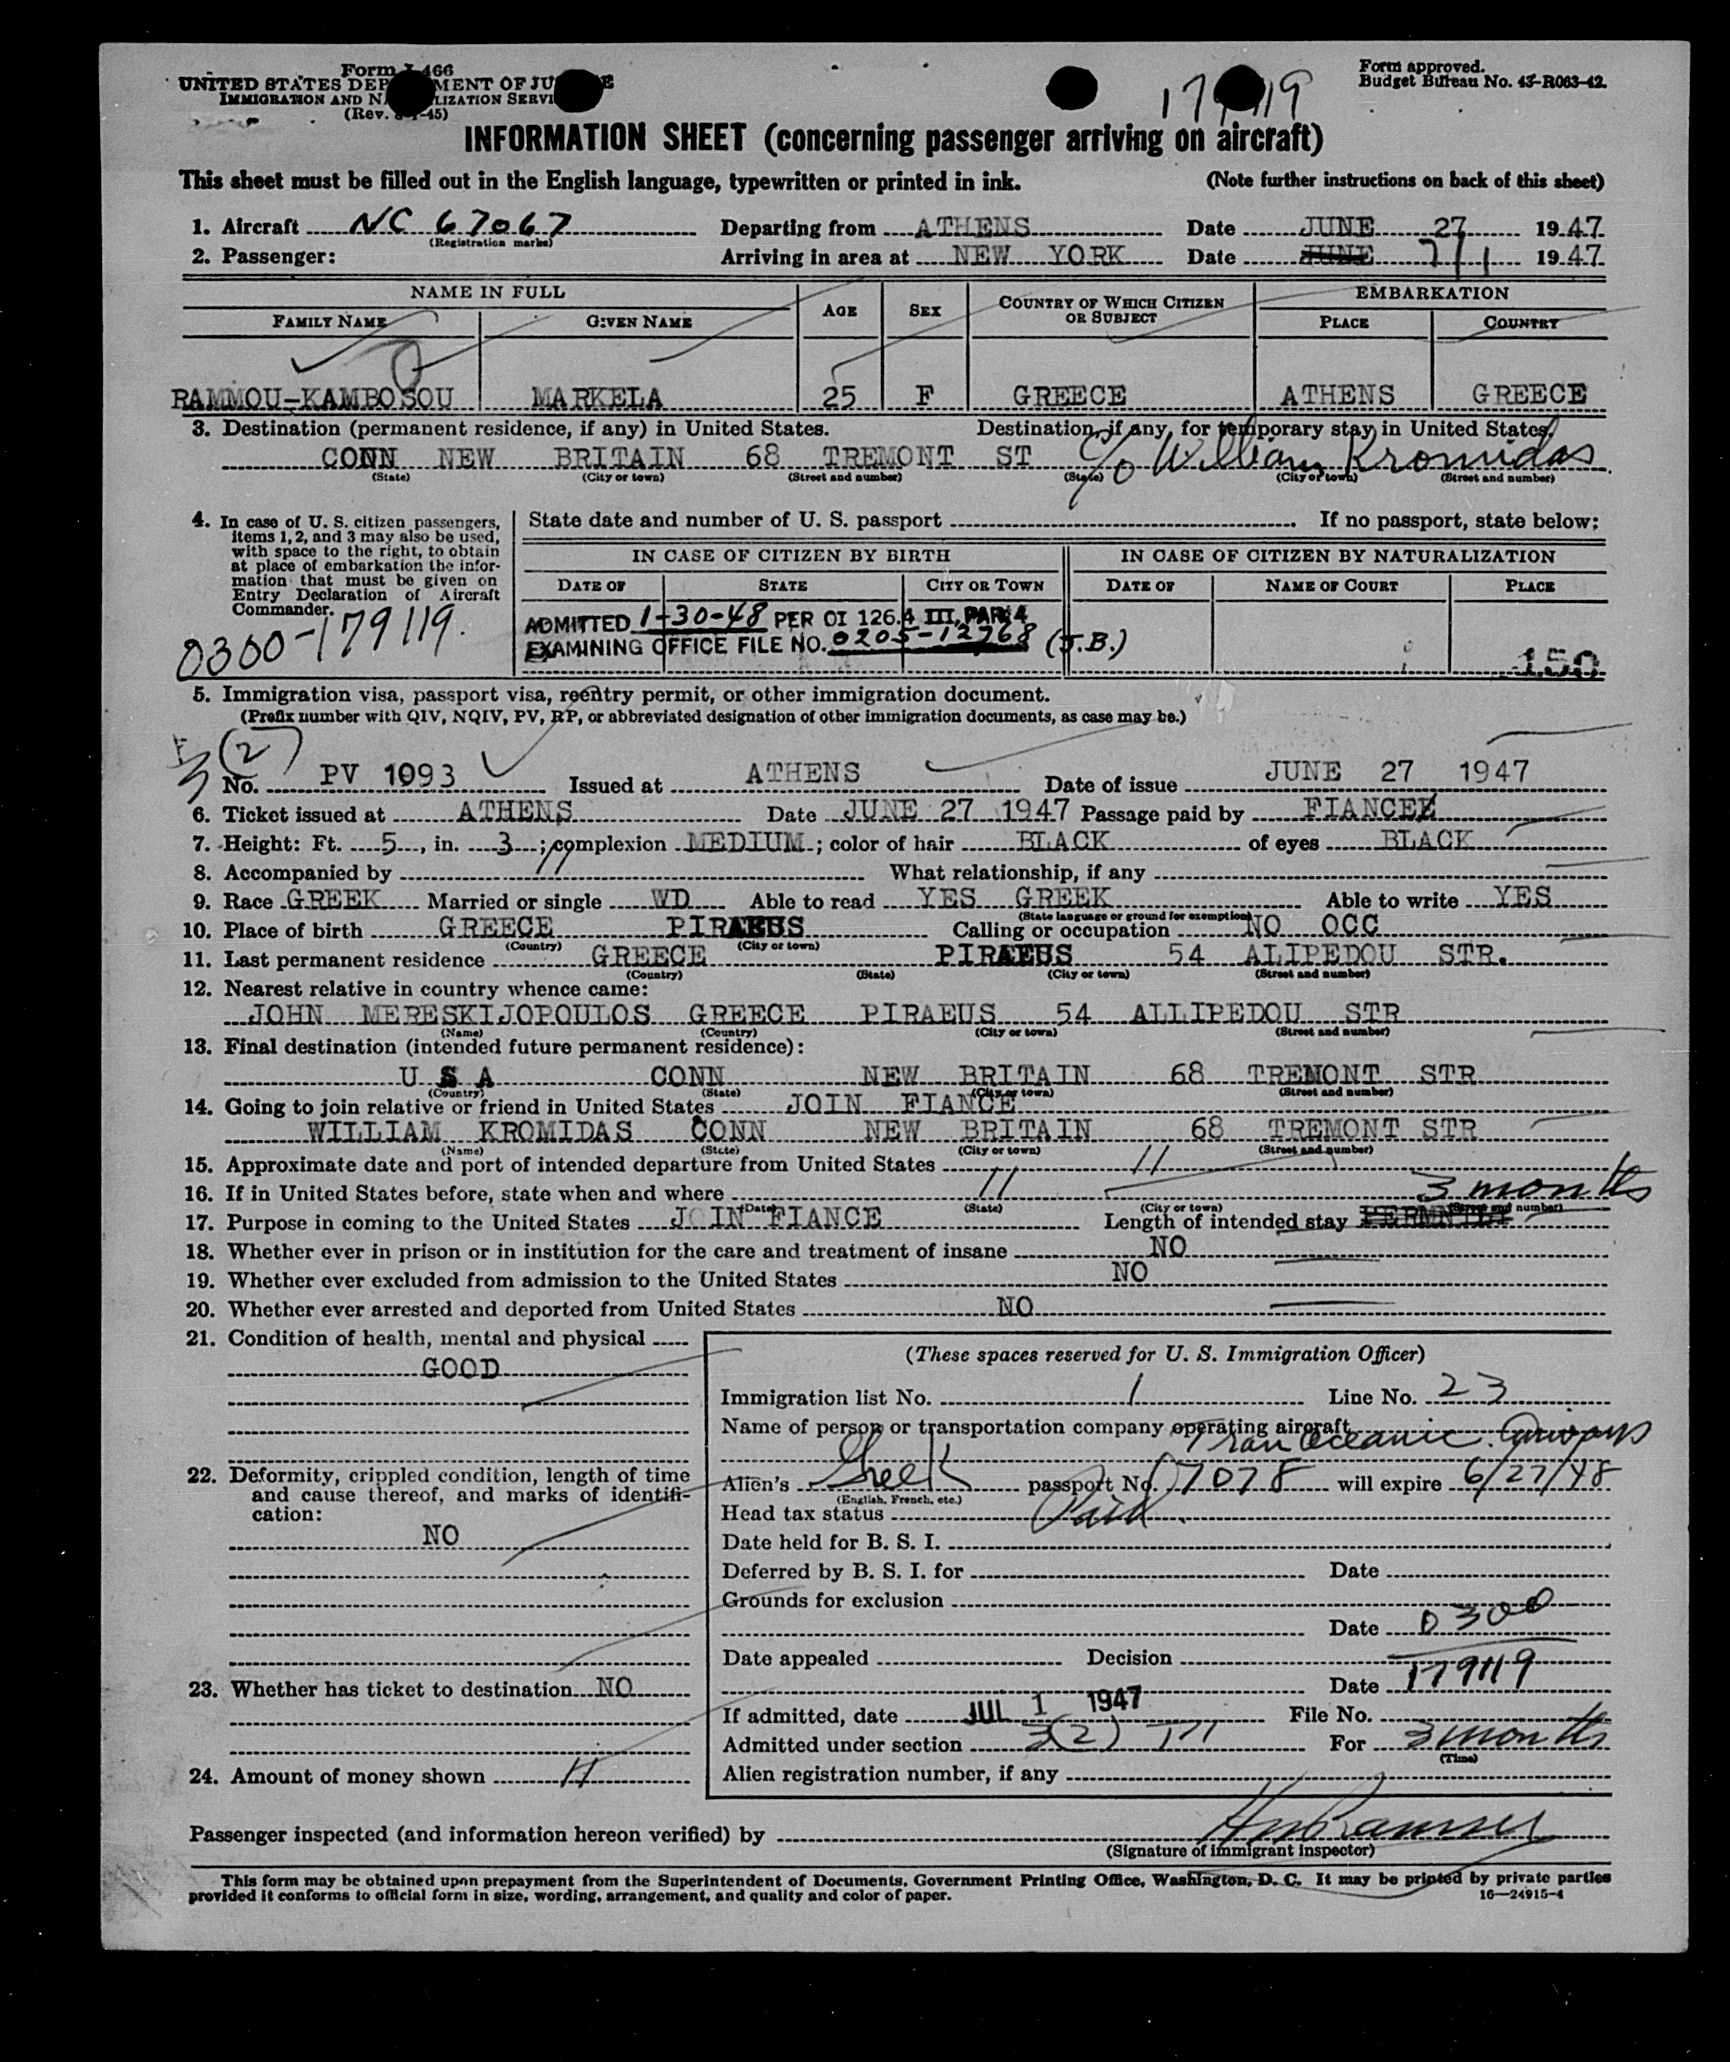 Form I-466
UNITED STATES DEPARTMENT OF JUSTICE
IMMIGRATION AND NATURALIZATION SERVICE
(Rev. -45)
Form approved.
Budget Bureau No. 43-R063-42.
179119
INFORMATION SHEET (concerning passenger arriving on aircraft)
This sheet must be filled out in the English language, typewritten or printed in ink. (Note further instructions on back of this sheet)
1. Aircraft NC 67067 Departing from ATHENS Date JUNE 27 1947
(Registration marks)
2. Passenger: Arriving in area at NEW YORK Date JUNE 7/1 1947
NAME IN FULL AGE SEX COUNTRY OF WHICH CITIZEN OR SUBJECT EMBARKATION
FAMILY NAME GIVEN NAME PLACE COUNTRY
RAMMOU-KAMBOSOU MARKELA 25 F GREECE ATHENS GREECE
3. Destination (permanent residence, if any) in United States. Destination, if any, for temporary stay in United States.
CONN NEW BRITAIN 68 TREMONT ST c/o William Kromidas
(State) (City or town) (Street and number) (State) (City or town) (Street and number)
4. In case of U. S. citizen passengers, items 1, 2, and 3 may also be used, with space to the right, to obtain at place of embarkation the information that must be given on Entry Declaration of Aircraft Commander.
0300-179119.
State date and number of U. S. passport If no passport, state below:
IN CASE OF CITIZEN BY BIRTH IN CASE OF CITIZEN BY NATURALIZATION
DATE OF STATE CITY OR TOWN DATE OF NAME OF COURT PLACE
ADMITTED 1-30-48 PER OI 126.4 III, PAR. 4
EXAMINING OFFICE FILE NO. 0205-12768 (J.B.)
150
5. Immigration visa, passport visa, reentry permit, or other immigration document.
(Prefix number with QIV, NQIV, PV, RP, or abbreviated designation of other immigration documents, as case may be.)
3(2)
No. PV 1093 Issued at ATHENS Date of issue JUNE 27 1947
6. Ticket issued at ATHENS Date JUNE 27 1947 Passage paid by FIANCEE
7. Height: Ft. 5, in. 3; complexion MEDIUM; color of hair BLACK of eyes BLACK
8. Accompanied by // What relationship, if any
9. Race GREEK Married or single WD Able to read YES GREEK Able to write YES
(State language or ground for exemption)
10. Place of birth GREECE PIRAEUS Calling or occupation NO OCC
(Country) (City or town)
11. Last permanent residence GREECE PIRAEUS 54 ALIPEDOU STR.
(Country) (State) (City or town) (Street and number)
12. Nearest relative in country whence came:
JOHN MERESKIJOPOULOS GREECE PIRAEUS 54 ALLIPEDOU STR
(Name) (Country) (City or town) (Street and number)
13. Final destination (intended future permanent residence):
U S A CONN NEW BRITAIN 68 TREMONT STR
(Country) (State) (City or town) (Street and number)
14. Going to join relative or friend in United States JOIN FIANCE
WILLIAM KROMIDAS CONN NEW BRITAIN 68 TREMONT STR
(Name) (State) (City or town) (Street and number)
15. Approximate date and port of intended departure from United States //
16. If in United States before, state when and where // 3 months
(Date) (State) (City or town) (Street and number)
17. Purpose in coming to the United States JOIN FIANCE Length of intended stay
18. Whether ever in prison or in institution for the care and treatment of insane NO
19. Whether ever excluded from admission to the United States NO
20. Whether ever arrested and deported from United States NO
21. Condition of health, mental and physical
GOOD
22. Deformity, crippled condition, length of time and cause thereof, and marks of identification:
NO
23. Whether has ticket to destination NO
24. Amount of money shown //
(These spaces reserved for U. S. Immigration Officer)
Immigration list No. 1 Line No. 23
Name of person or transportation company operating aircraft
TranOceanic Airways
Alien's Greek passport No. 17078 will expire 6/27/48
(English, French, etc.)
Head tax status Paid
Date held for B. S. I.
Deferred by B. S. I. for Date
Grounds for exclusion
Date 0300
Date appealed Decision
Date 179119
If admitted, date JUL 1 1947 File No.
Admitted under section 3(2) For 3 months
(Time)
Alien registration number, if any
Passenger inspected (and information hereon verified) by
(Signature of immigrant inspector)
This form may be obtained upon prepayment from the Superintendent of Documents, Government Printing Office, Washington, D. C. It may be printed by private parties
provided it conforms to official form in size, wording, arrangement, and quality and color of paper. 16—24915-4